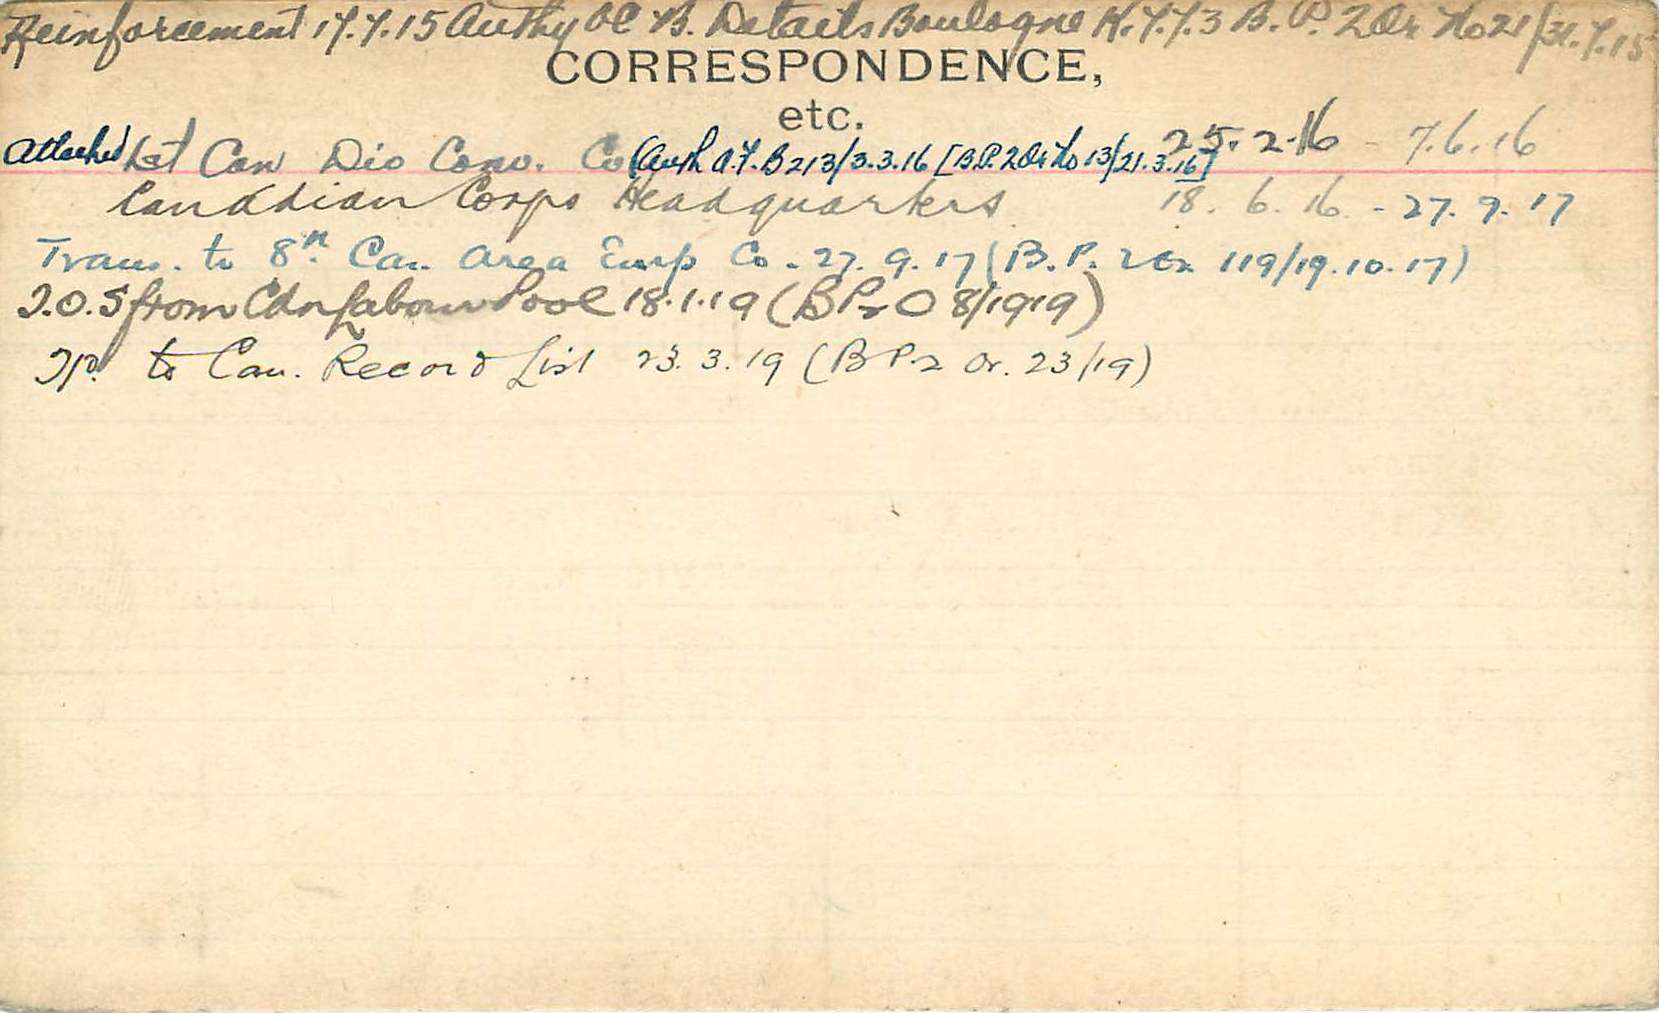 Reinforcement 17.7.15 Authy OC B. Details Boulogne K.7.7.3 B.P. 2 Or No 21/31.7.15
CORRESPONDENCE,
etc.
Attached 1st Can Div Conv. Co (Auth A.F. B213/3.3.16 [B.P. 2 Or No 13/21.3.16] 25.2.16 - 7.6.16
Canddian Corps Headquarters 18.6.16 - 27.9.17
Trans. to 8th Can. Area Emp Co. 27.9.17 (B.P. 2 Or 119/19.10.17)
T.O.S from Cdn Labour Pool 18.1.19 (BP2 O 8/1919)
Tp. to Can. Record List 23.3.19 (B P.2 Or. 23/19)